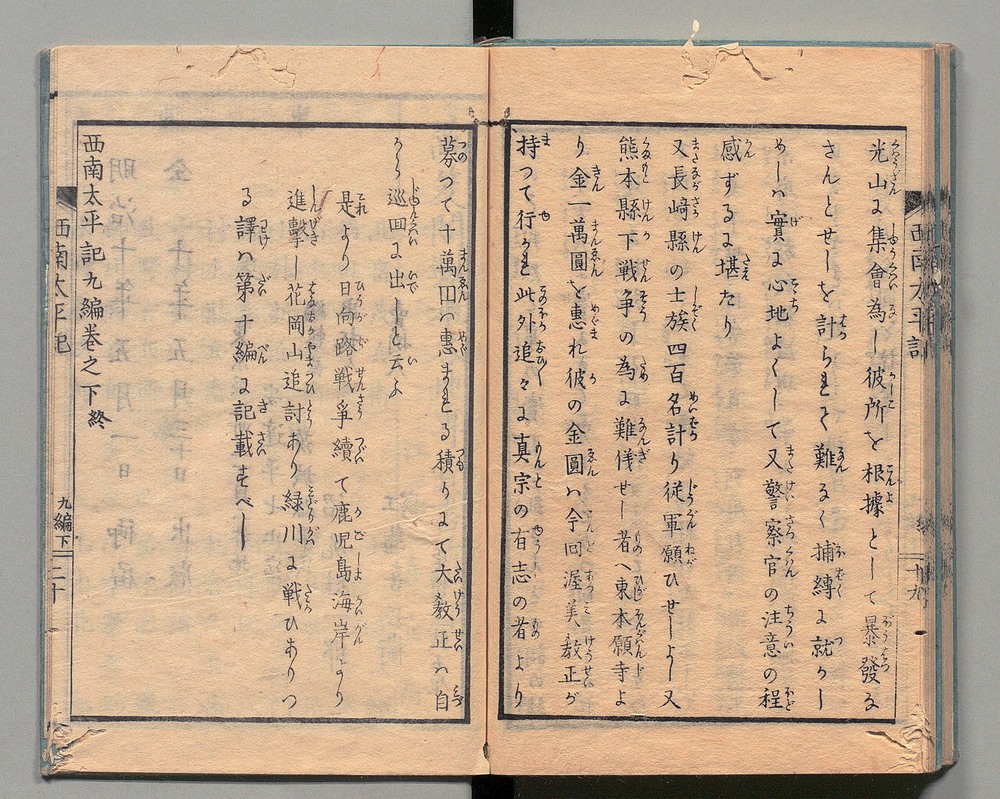 光山に集會為し彼所を根據として暴發な
さんとせしを計らまく難なく捕縛に就かし
めしハ實に心地よくして又警察官の注意の程
感ずるに堪たり
又長崎縣の士族四百名計り従軍願ひせしよし又
熊本縣下戦争の為に難儀せし者へ東本願寺よ
り金一萬圓を惠れ彼の金圓ハ今回渥美教正が
持つて行かれ此外追々に真宗の有志の者より
募つて十萬円ハ惠まるる積りにて大教正ハ自
から巡回に出しと云ふ
是より日向路戦爭續て鹿児島海岸より
進擊し花岡山追討あり緑川に戦ひありつ
る譯ハ第十編に記載すべし
西南太平記九編巻之下終
西南太平記
九編下
二十
西南太平記
十九